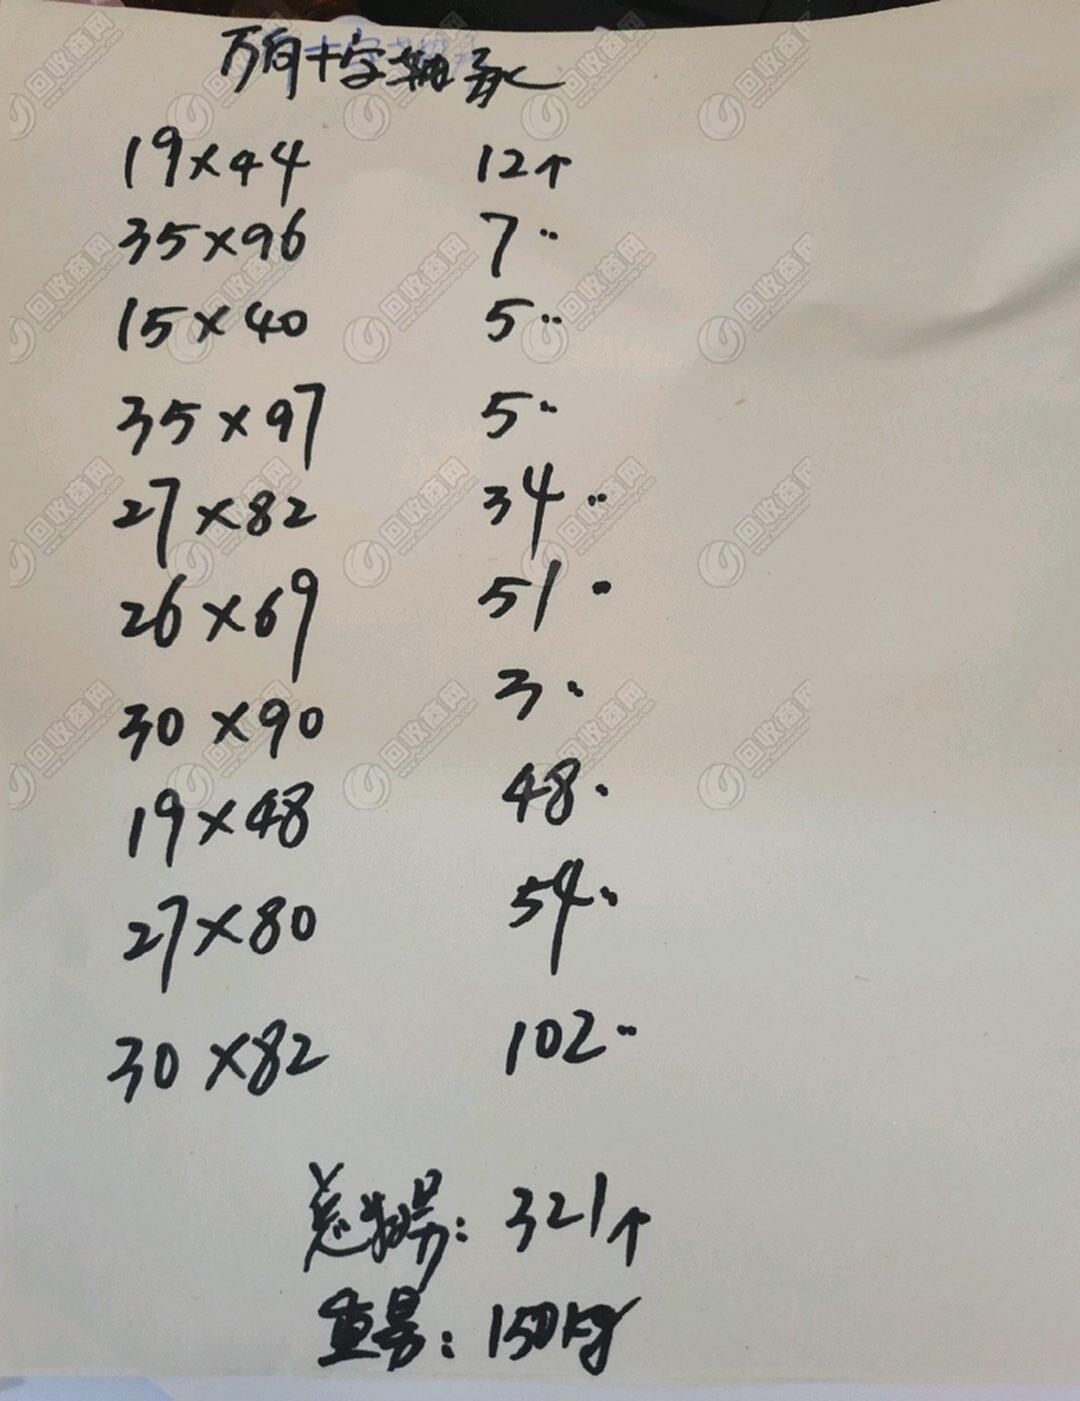 万向十字轴承
19×44 12个
35×96 7〃
15×40 5〃
35×97 5〃
27×82 34〃
26×69 51〃
30×90 3〃
19×48 48〃
27×80 54〃
30×82 102〃
总数量：321个
重量：150kg
回收商网